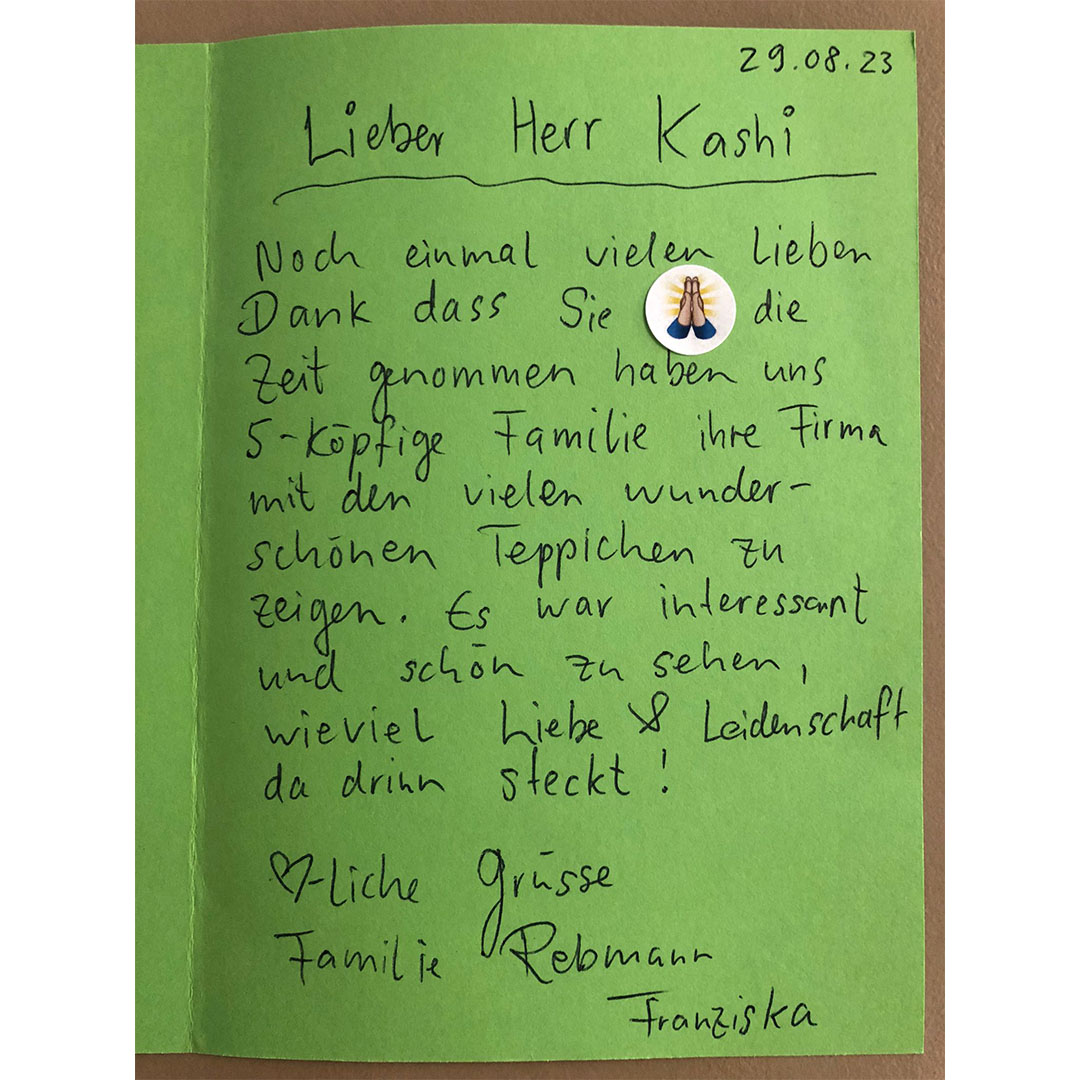 29.08.23
Lieber Herr Kashi
Noch einmal vielen lieben
Dank dass Sie 🙏 die
Zeit genommen haben uns
5-köpfige Familie ihre Firma
mit den vielen wunder-
schönen Teppichen zu
zeigen. Es war interessant
und schön zu sehen,
wieviel Liebe & Leidenschaft
da drinn steckt!
♡-liche Grüsse
Familie Rebmann
Franziska